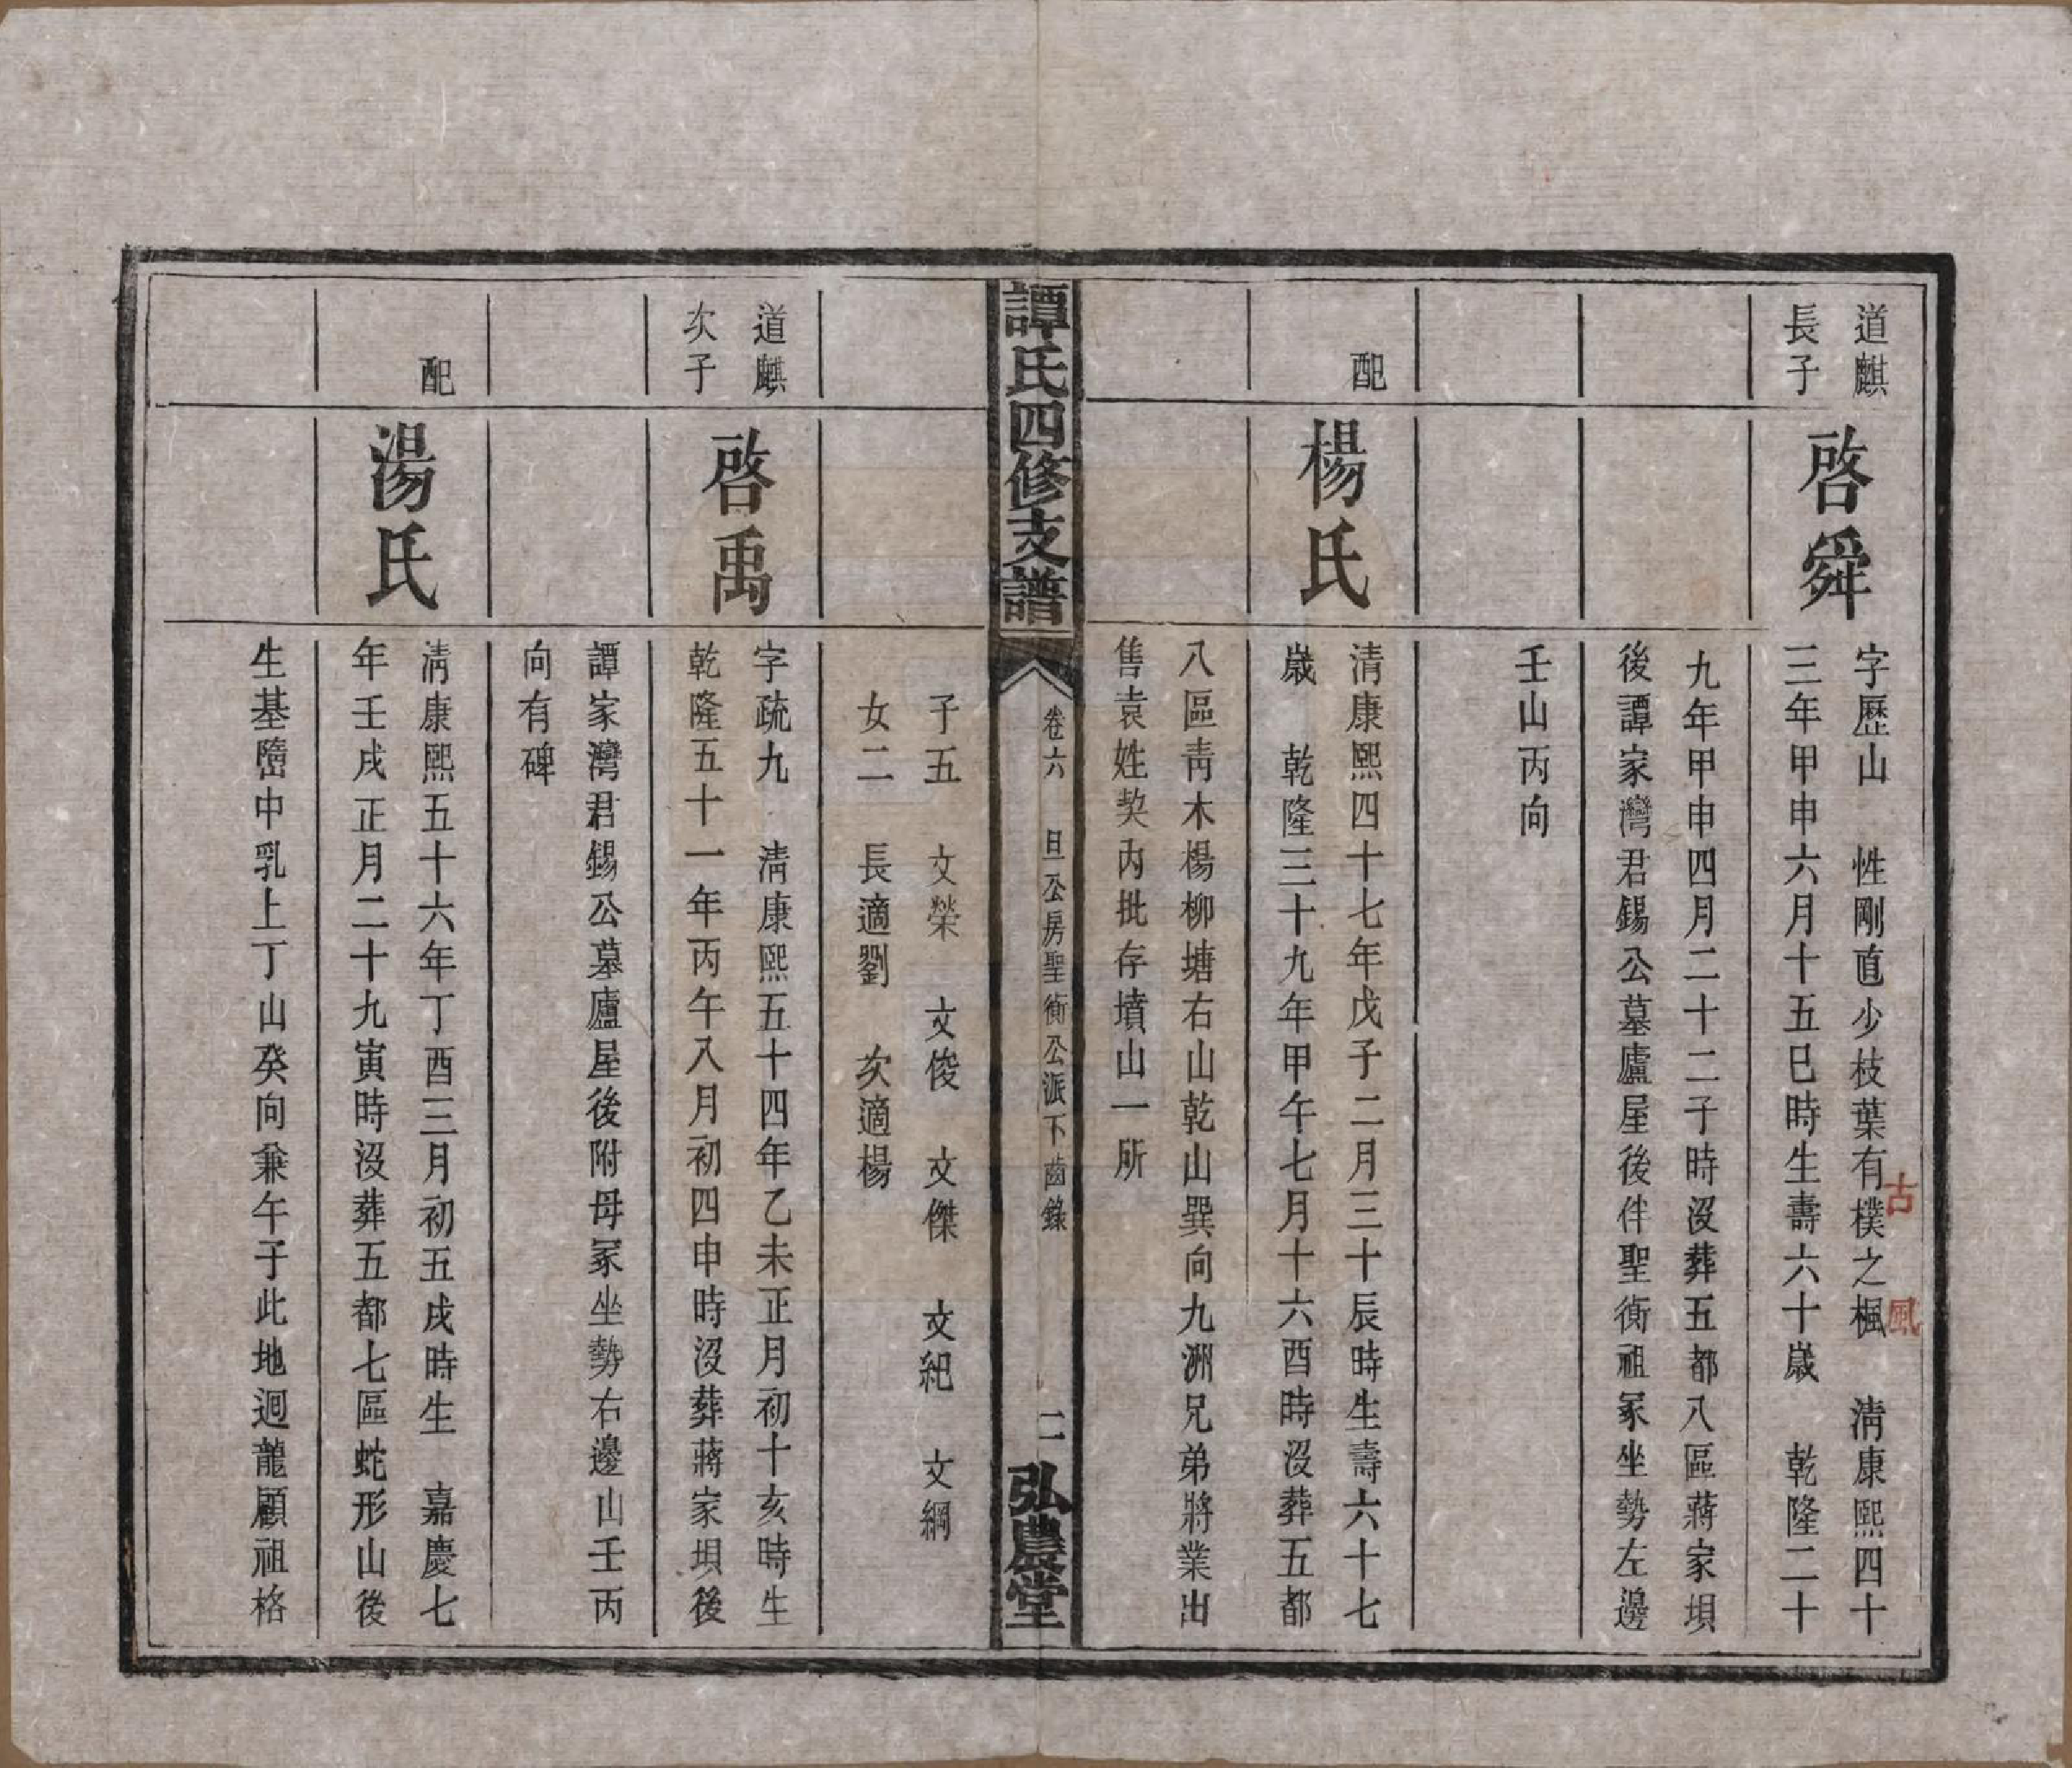 道麒
長子
啓舜
字歷山　性剛直少枝葉有樸之楓　清康熙四十
古風
三年甲申六月十五巳時生壽六十歲　乾隆二十
九年甲申四月二十二子時沒葬五都八區蔣家垻
後譚家灣君錫公墓廬屋後伴聖衡祖冢坐勢左邊
壬山丙向
配
楊氏
清康熙四十七年戊子二月三十辰時生壽六十七
歲　乾隆三十九年甲午七月十六酉時沒葬五都
八區靑木楊柳塘右山乾山巽向九洲兄弟將業出
售袁姓契內批存墳山一所
譚氏四修支譜
卷六　旦公房聖衡公派下齒錄
二
弘農堂
子五　文榮　文俊　文傑　文紀　文綱
女二　長適劉　次適楊
道麒
次子
啓禹
字疏九　清康熙五十四年乙未正月初十亥時生
乾隆五十一年丙午八月初四申時沒葬蔣家垻後
譚家灣君錫公墓廬屋後附母冢坐勢右邊山壬丙
向有碑
配
湯氏
清康熙五十六年丁酉三月初五戌時生　嘉慶七
年壬戌正月二十九寅時沒葬五都七區蛇形山後
生基壋中乳上丁山癸向兼午子此地迴龍顧祖格